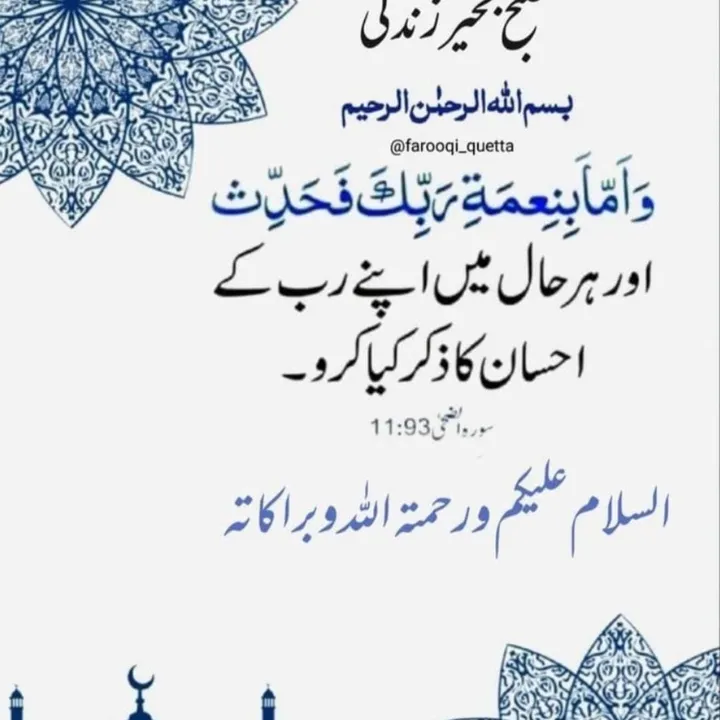 صبح بخیر زندگی
بسم اللہ الرحمٰن الرحیم
@farooqi_quetta
وَاَمَّا بِنِعمَةِ رَبِّكَ فَحَدِّث
اور ہر حال میں اپنے رب کے
احسان کا ذکر کیا کرو۔
سورہ الضحیٰ 11:93
السلام علیکم ورحمتہ اللہ وبراکاتہ